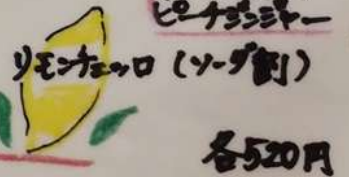 ピーチジンジャー
リモンチェッロ(ソーダ割)
各520円